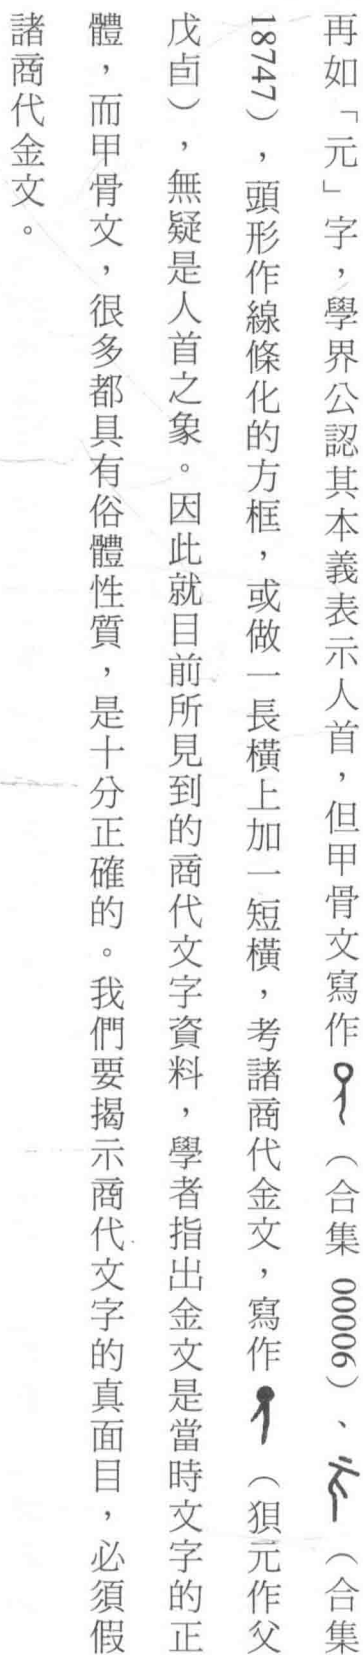 再如「元」字，學界公認其本義表示人首，但甲骨文寫作（合集 00006）、（合集
18747），頭形作線條化的方框，或做一長橫上加一短橫，考諸商代金文，寫作（狽元作父
戊卣），無疑是人首之象。因此就目前所見到的商代文字資料，學者指出金文是當時文字的正
體，而甲骨文，很多都具有俗體性質，是十分正確的。我們要揭示商代文字的真面目，必須假
諸商代金文。